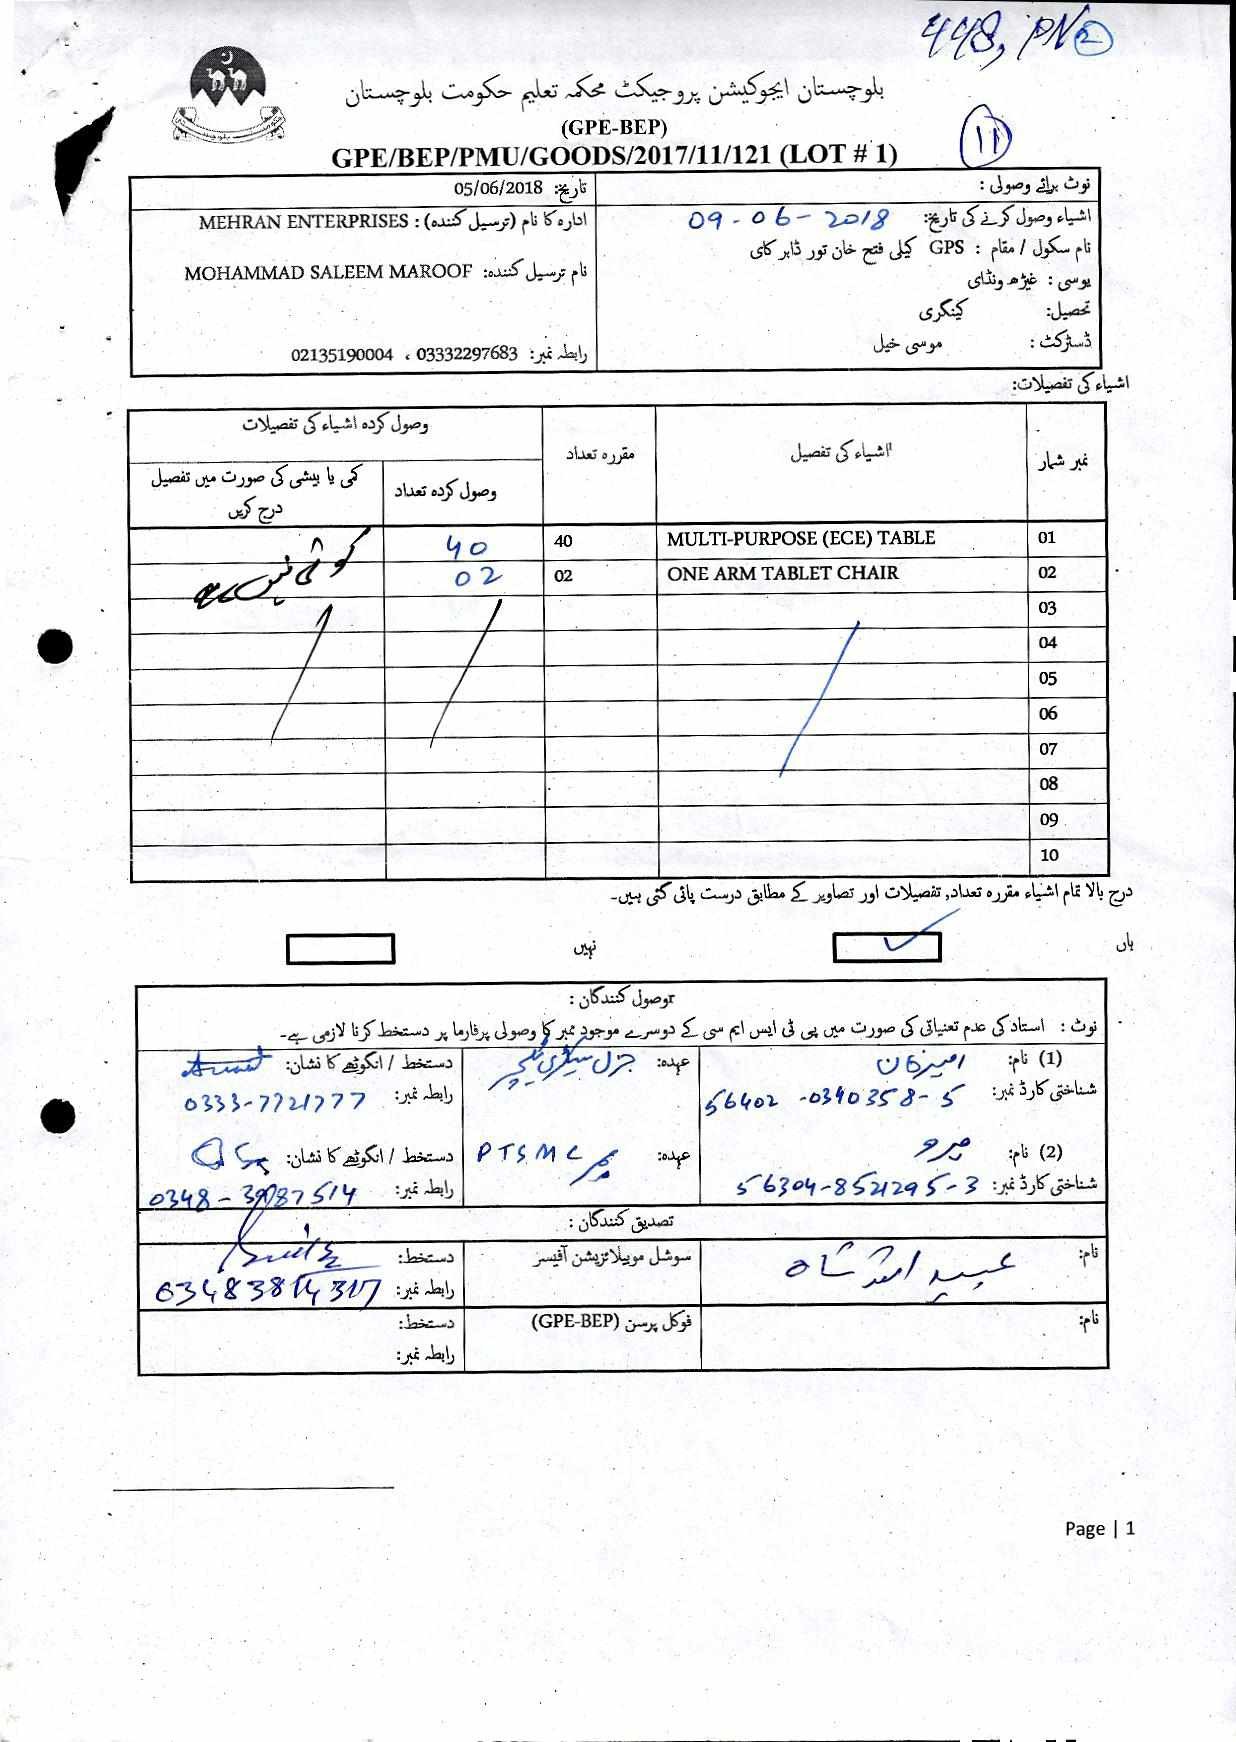 448, PN 2
بلوچستان ایجوکیشن پروجیکٹ محکمہ تعلیم حکومت بلوچستان
(GPE-BEP)
11
GPE/BEP/PMU/GOODS/2017/11/121 (LOT # 1)
نوٹ برائے وصولی :
تاریخ: 05/06/2018
اشیاء وصول کرنے کی تاریخ: 09-06-2018
ادارہ کا نام (ترسیل کنندہ) : MEHRAN ENTERPRISES
نام سکول / مقام : GPS کیلی فتح خان تور ڈابر کای
نام ترسیل کنندہ: MOHAMMAD SALEEM MAROOF
یوسی : غیڑھ ونڈای
تحصیل: کینگری
ڈسٹرکٹ : موسی خیل
رابطہ نمبر: 03332297683 ، 02135190004
اشیاء کی تفصیلات:
نمبر شمار اشیاء کی تفصیل مقررہ تعداد وصول کردہ اشیاء کی تفصیلات
وصول کردہ تعداد کمی یا بیشی کی صورت میں تفصیل درج کریں
01 MULTI-PURPOSE (ECE) TABLE 40 40 کوئی نہیں ہے
02 ONE ARM TABLET CHAIR 02 02
03
04
05
06
07
08
09
10
درج بالا تمام اشیاء مقررہ تعداد, تفصیلات اور تصاویر کے مطابق درست پائی گئی ہیں۔
ہاں نہیں
وصول کنندگان :
نوٹ : استاد کی عدم تعنیاتی کی صورت میں پی ٹی ایس ایم سی کے دوسرے موجود ممبر کا وصولی پرفارما پر دستخط کرنا لازمی ہے۔
(1) نام: عہدہ: جنرل سیکٹری ٹیچر دستخط / انگوٹھے کا نشان:
شناختی کارڈ نمبر: 56402-0340358-5 رابطہ نمبر: 0333-7721777
(2) نام: عہدہ: PTSMC ممبر دستخط / انگوٹھے کا نشان:
شناختی کارڈ نمبر: 56304-8521295-3 رابطہ نمبر:
تصدیق کنندگان :
نام: سوشل موبیلائزیشن آفیسر دستخط:
رابطہ نمبر:
نام: فوکل پرسن (GPE-BEP) دستخط:
رابطہ نمبر:
Page | 1